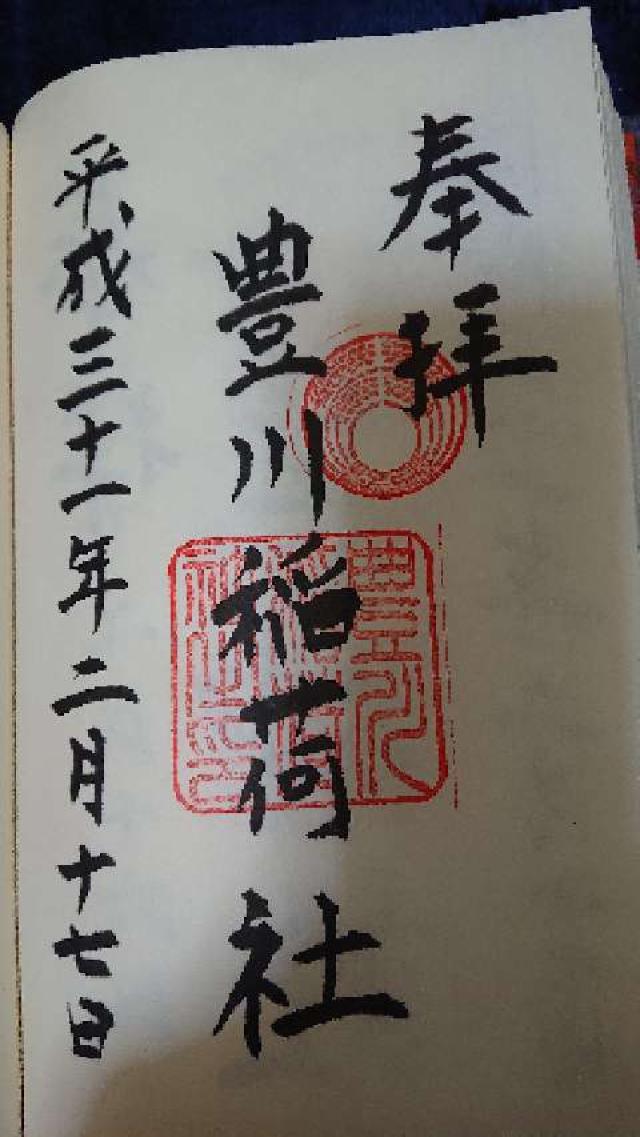 奉拝
豊川稲荷社
平成三十一年二月十七日